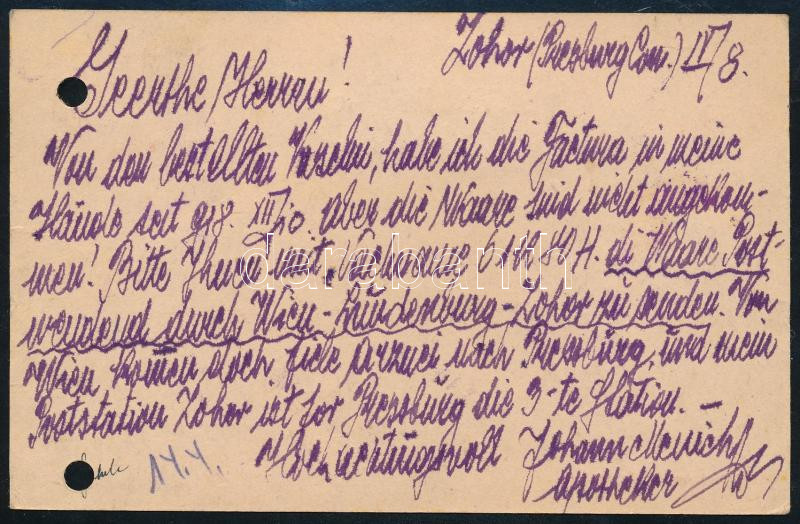 Zohor (Preszburg Com.) IV/8.
Geerthe Herren!
Von den bestellten Vaselin, habe ich die Factura in meine
Hände seit 918. XII/20. aber die Waare sind nicht angekom-
men! Bitte Ihnen mit di Waare Post-
wendend durch Wien-Lundenburg-Zohor zu senden. Von
Wien komen doch fiele Arznei nach Preszburg, und mein
Poststation Zohor ist for Preszburg die 3-te Station. —
Hochachtungsvoll Johann Menich
Apotheker
14.4.
darabanth